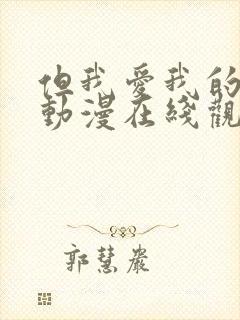 但我愛我的
動漫在綫觀
郭慧嚴